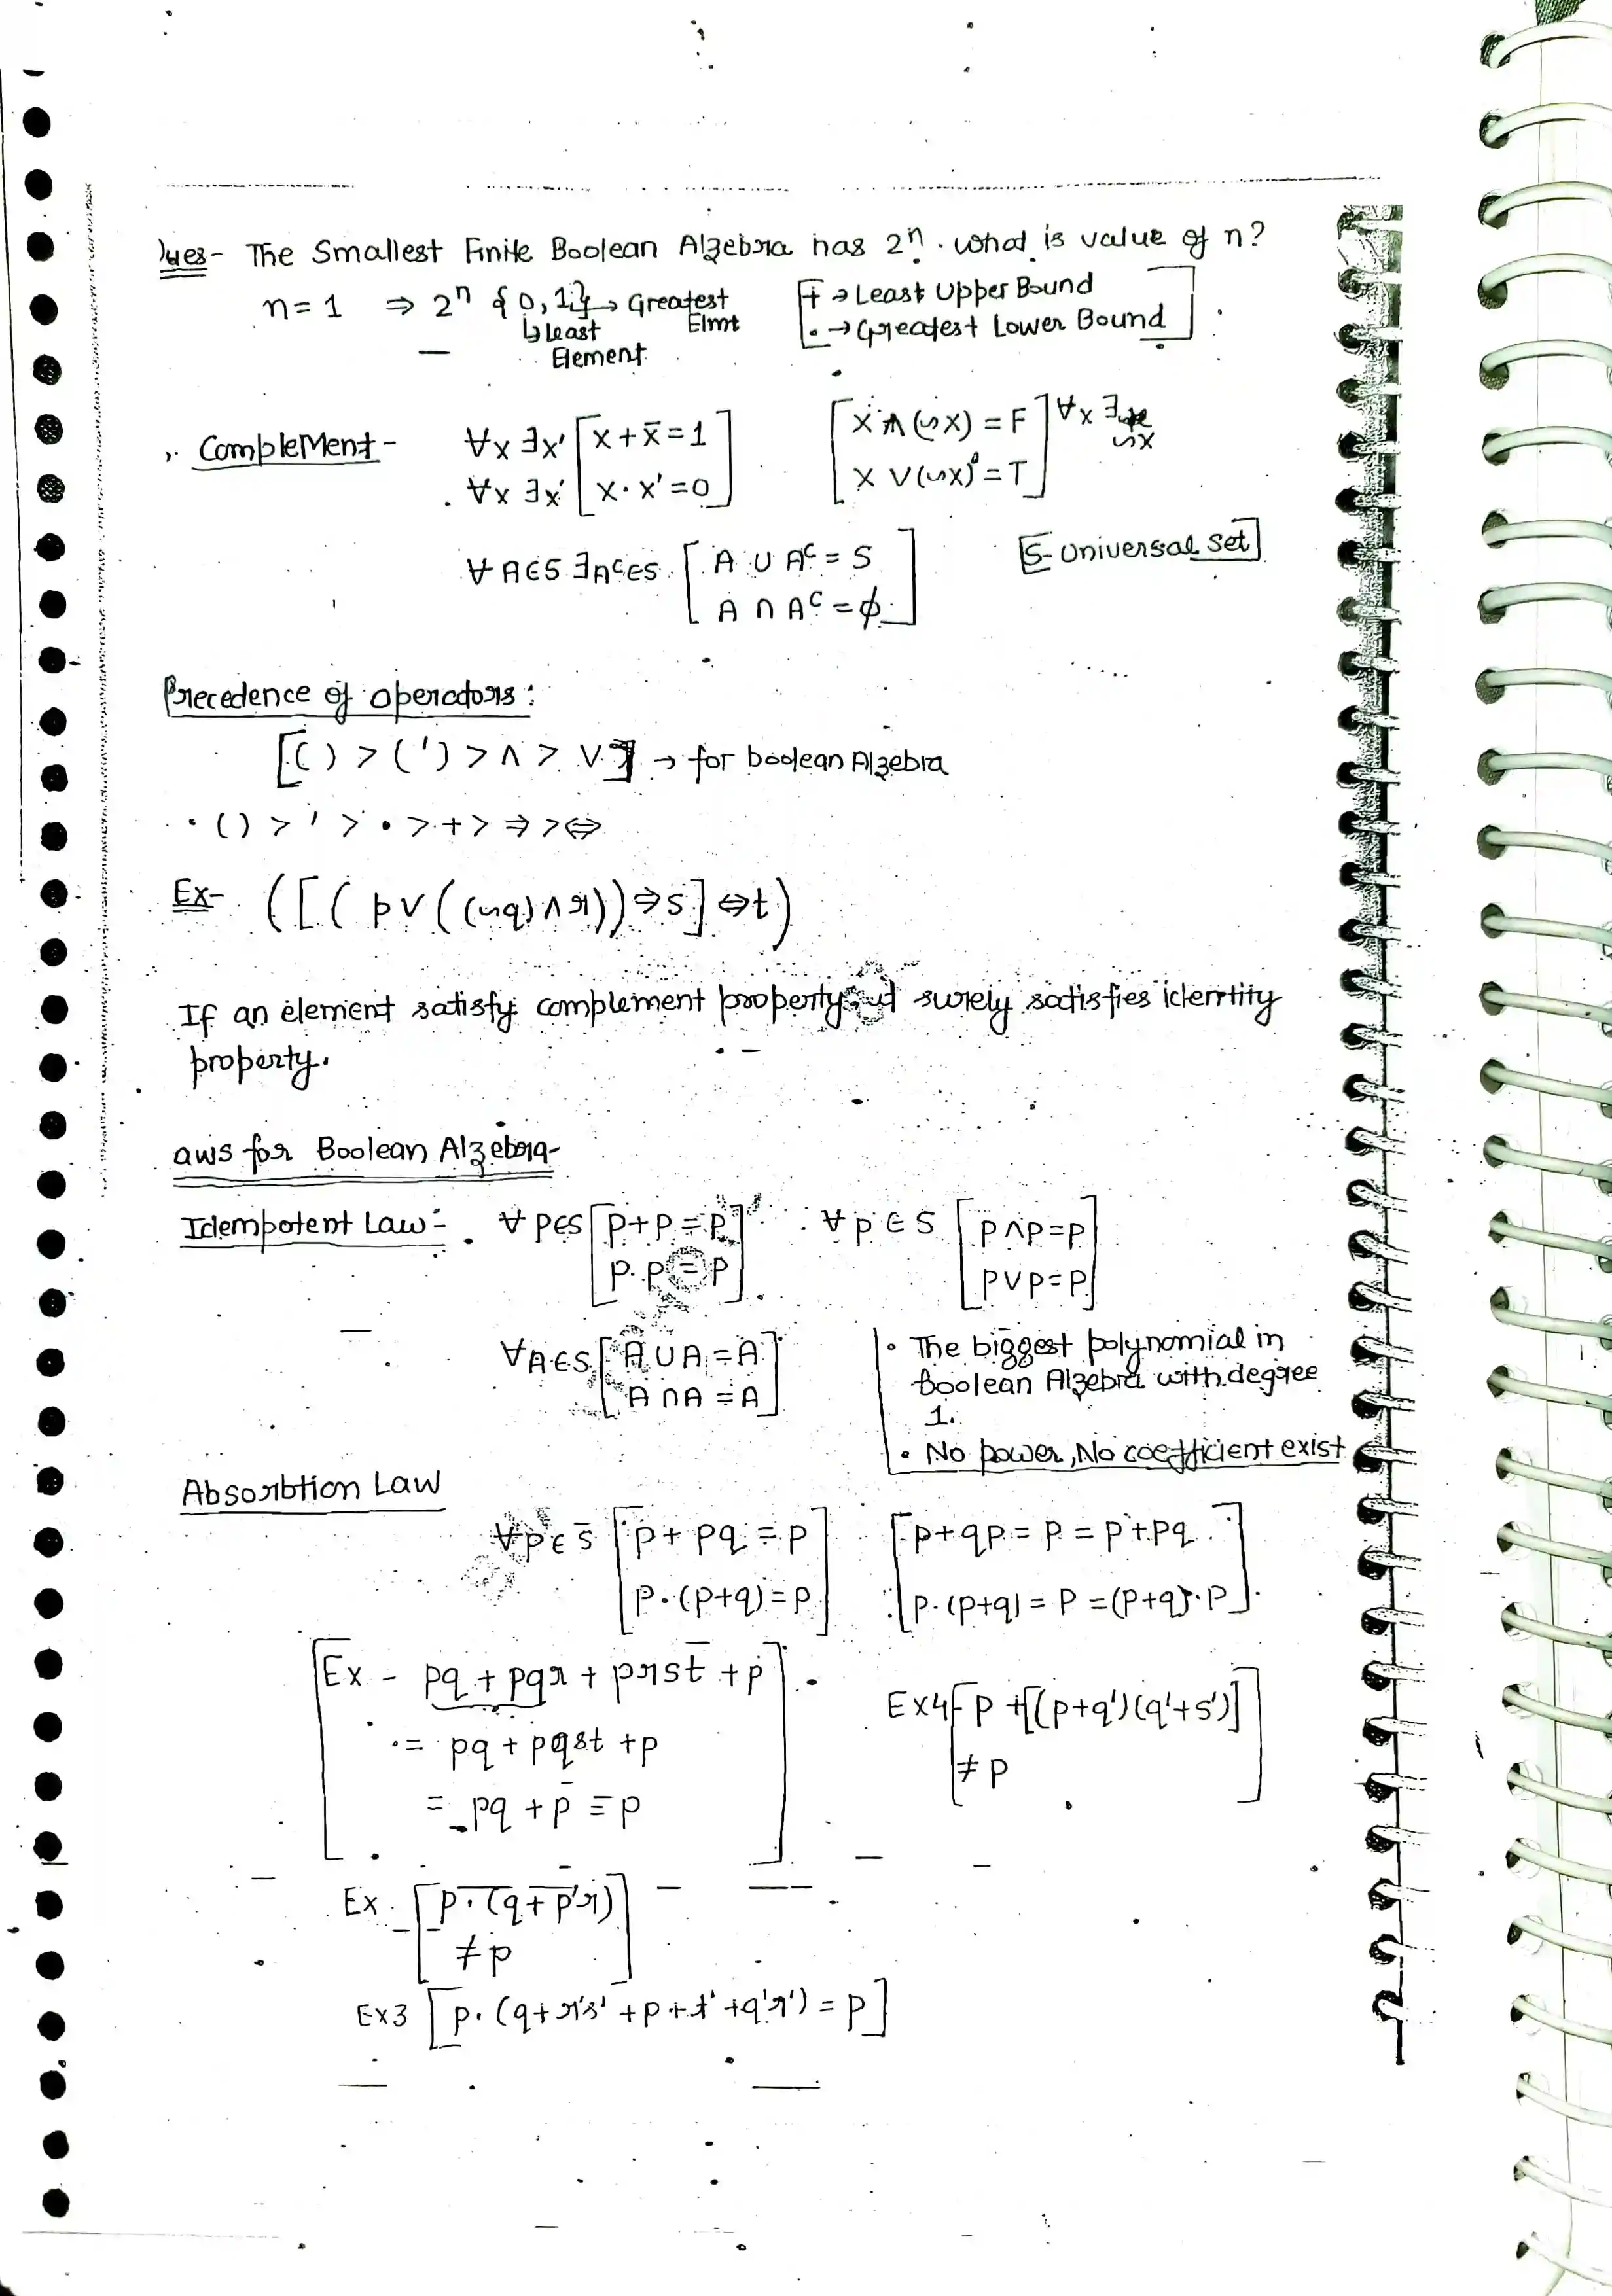 Ques- The Smallest Finite Boolean Algebra has 2ⁿ. What is value of n?
n = 1 ⇒ 2ⁿ {0, 1} → Greatest Elmt
↳ Least Element
[+ → Least Upper Bound
• → Greatest Lower Bound]
Complement - ∀x ∃x' [x + x̄ = 1
∀x ∃x' x · x' = 0]
[x ∧ (∼x) = F
x ∨ (∼x) = T] ∀x ∃ ∼x
∀ A∈S ∃Aᶜ∈S [A ∪ Aᶜ = S
A ∩ Aᶜ = ϕ]
[S - Universal Set]
Precedence of operators :
[( ) > (') > ∧ > ∨] → for boolean Algebra
• ( ) > ' > • > + > ⇒ > ⇔
Ex- ([( p ∨ ((∼q) ∧ r)) ⇒ s] ⇔ t)
If an element satisfy complement property, it surely satisfies identity
property.
aws for Boolean Algebra-
Idempotent Law - ∀ p∈S [p + p = p
p . p = p]
∀ p ∈ S [p ∧ p = p
p ∨ p = p]
∀A∈S [A ∪ A = A
A ∩ A = A]
• The biggest polynomial in
Boolean Algebra with degree
1.
• No power, No coefficient exist
Absorbtion Law
∀p∈S [p + pq = p
p . (p+q) = p]
[p + qp = p = p + pq
p . (p+q) = p = (p+q) . p]
[Ex - pq + pqr + prst + p
= pq + pqst + p
= pq + p = p]
Ex4 [p + [(p+q')(q'+s')]
≠ p]
Ex - [p . (q + p'r)
≠ p]
Ex3 [p . (q + r's' + p + t' + q'r') = p]